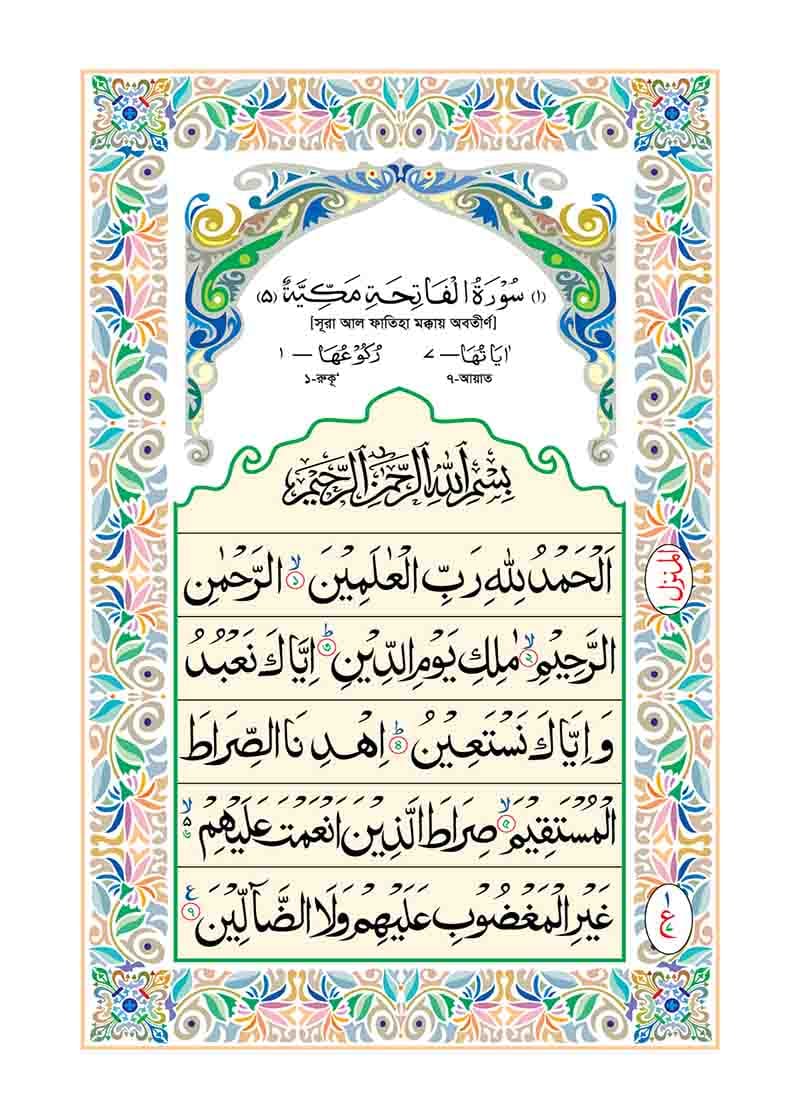 (١) سُوْرَةُ الْفَاتِحَةِ مَكِّيَّةٌ (٥)
[সূরা আল ফাতিহা মক্কায় অবতীর্ণ]
اٰيَاتُهَا— ٧ رُكُوْعُهَا — ١
৭-আয়াত ১-রুকূ‘
بِسْمِ اللّٰهِ الرَّحْمٰنِ الرَّحِيْمِ
اَلْحَمْدُ لِلّٰهِ رَبِّ الْعٰلَمِيْنَ ۙ ১ الرَّحْمٰنِ
الرَّحِيْمِ ۙ ২ مٰلِكِ يَوْمِ الدِّيْنِ ؕ ৩ اِيَّاكَ نَعْبُدُ
وَاِيَّاكَ نَسْتَعِيْنُ ؕ ৪ اِهْدِنَا الصِّرَاطَ
الْمُسْتَقِيْمَ ۙ ৫ صِرَاطَ الَّذِيْنَ اَنْعَمْتَ عَلَيْهِمْ ۙ ৬
غَيْرِ الْمَغْضُوْبِ عَلَيْهِمْ وَلَا الضَّآلِّيْنَ ع ৭
المنزل ١
١ ع ٧